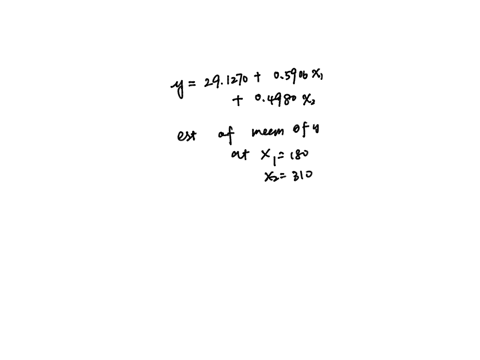 y = 29.1270 + 0.5906 x₁
+ 0.4980 x₂
est of mean of y
at x₁ = 180
x₂ = 310